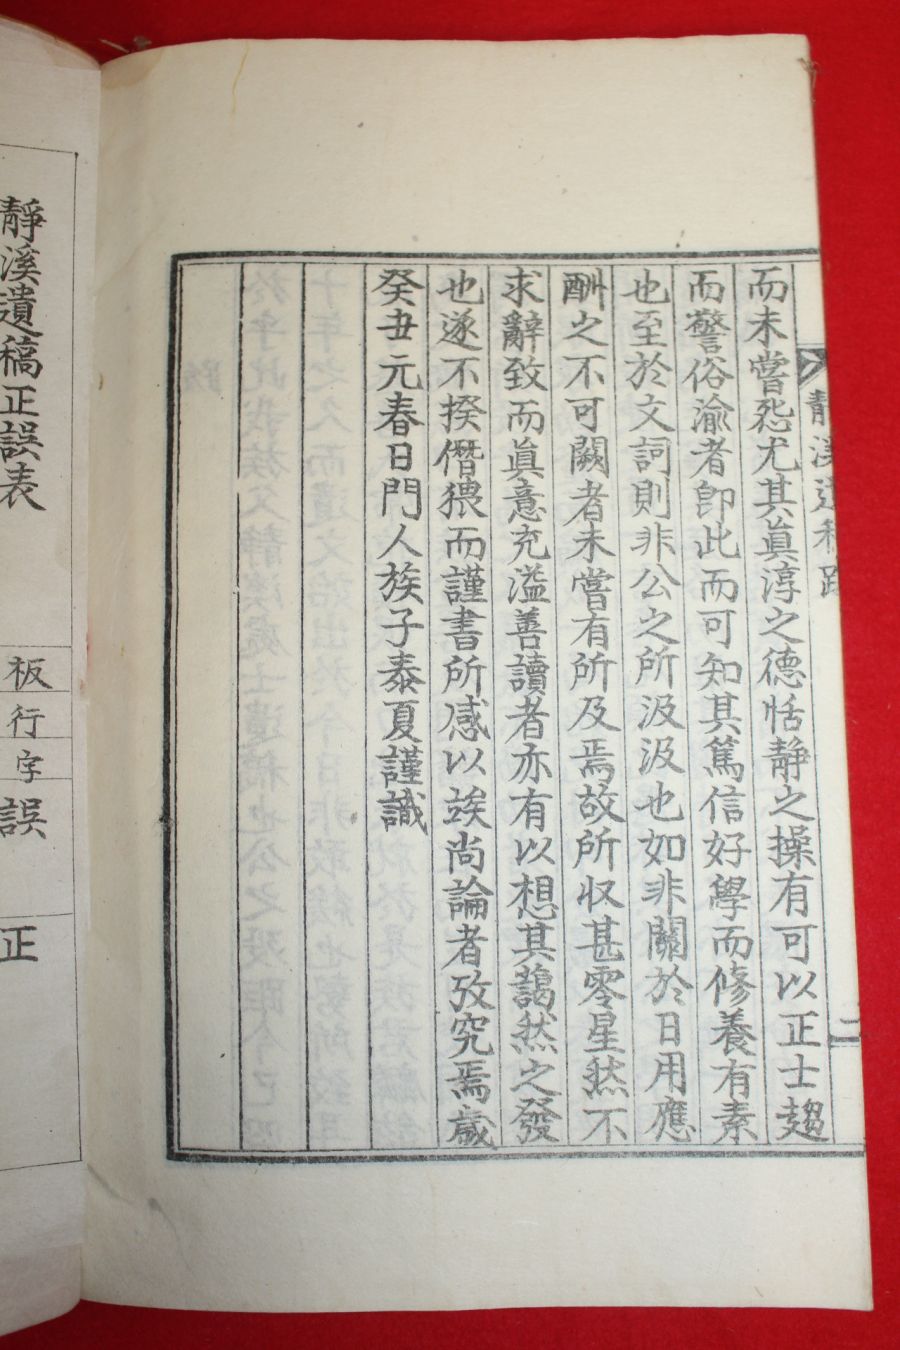 靜溪遺稿跋
二
而未嘗怨尤其眞淳之德恬靜之操有可以正士趨
而警俗渝者卽此而可知其篤信好學而修養有素
也至於文詞則非公之所汲汲也如非關於日用應
酬之不可闕者未嘗有所及焉故所収甚零星然不
求辭致而眞意充溢善讀者亦有以想其藹然之發
也遂不揆僭猥而謹書所感以竢尚論者攷究焉歲
癸丑元春日門人族子泰夏謹識
靜溪遺稿正誤表
板
行
字
誤
正